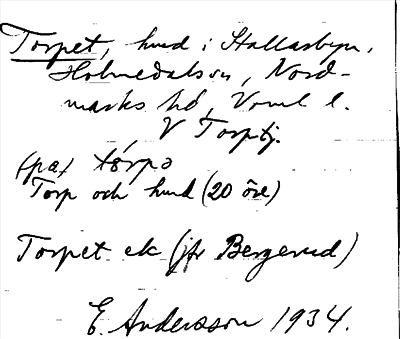 Torpet, hmd i Stallarbyn,
Holmedals sn, Nord-
marks hd, Vrml l.
V Torptj.
(på) tórpə
Torp och hmd (20 öre)
Torpet ek (jfr Bergerud)
E. Andersson 1934.